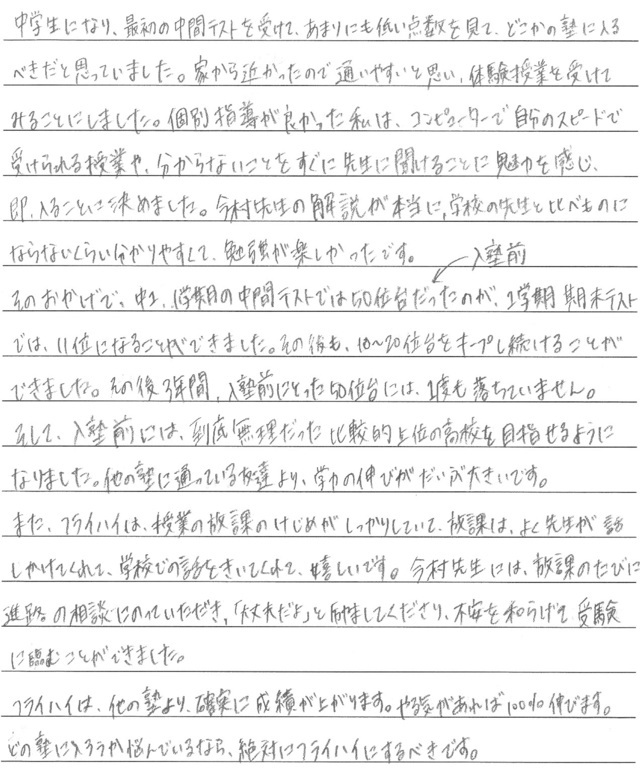 中学生になり、最初の中間テストを受けて、あまりにも低い点数を見て、どこかの塾に入る
べきだと思っていました。家から近かったので通いやすいと思い、体験授業を受けて
みることにしました。個別指導が良かった私は、コンピューターで自分のスピードで
受けられる授業や、分からないことをすぐに先生に聞けることに魅力を感じ、
即、入ることに決めました。今村先生の解説が本当に、学校の先生と比べものに
ならないくらい分かりやすくて、勉強が楽しかったです。
入塾前
そのおかげで、中1、1学期の中間テストでは50位台だったのが、1学期期末テスト
では、11位になることができました。その後も、10～20位台をキープし続けることが
できました。その後3年間、入塾前にとった50位台には、1度も落ちていません。
そして、入塾前には、到底無理だった比較的上位の高校を目指せるように
なりました。他の塾に通っている友達より、学力の伸びがだいぶ大きいです。
また、フライハイは、授業の放課のけじめがしっかりしていて、放課は、よく先生が話
しかけてくれて、学校での話をきいてくれて、嬉しいです。今村先生には、放課のたびに
進路の相談にのっていただき、「大丈夫だよ」と励ましてくださり、不安を和らげて受験
に臨むことができました。
フライハイは、他の塾より、確実に成績が上がります。やる気があれば100%伸びます。
どの塾に入ろうか悩んでいるなら、絶対にフライハイにするべきです。